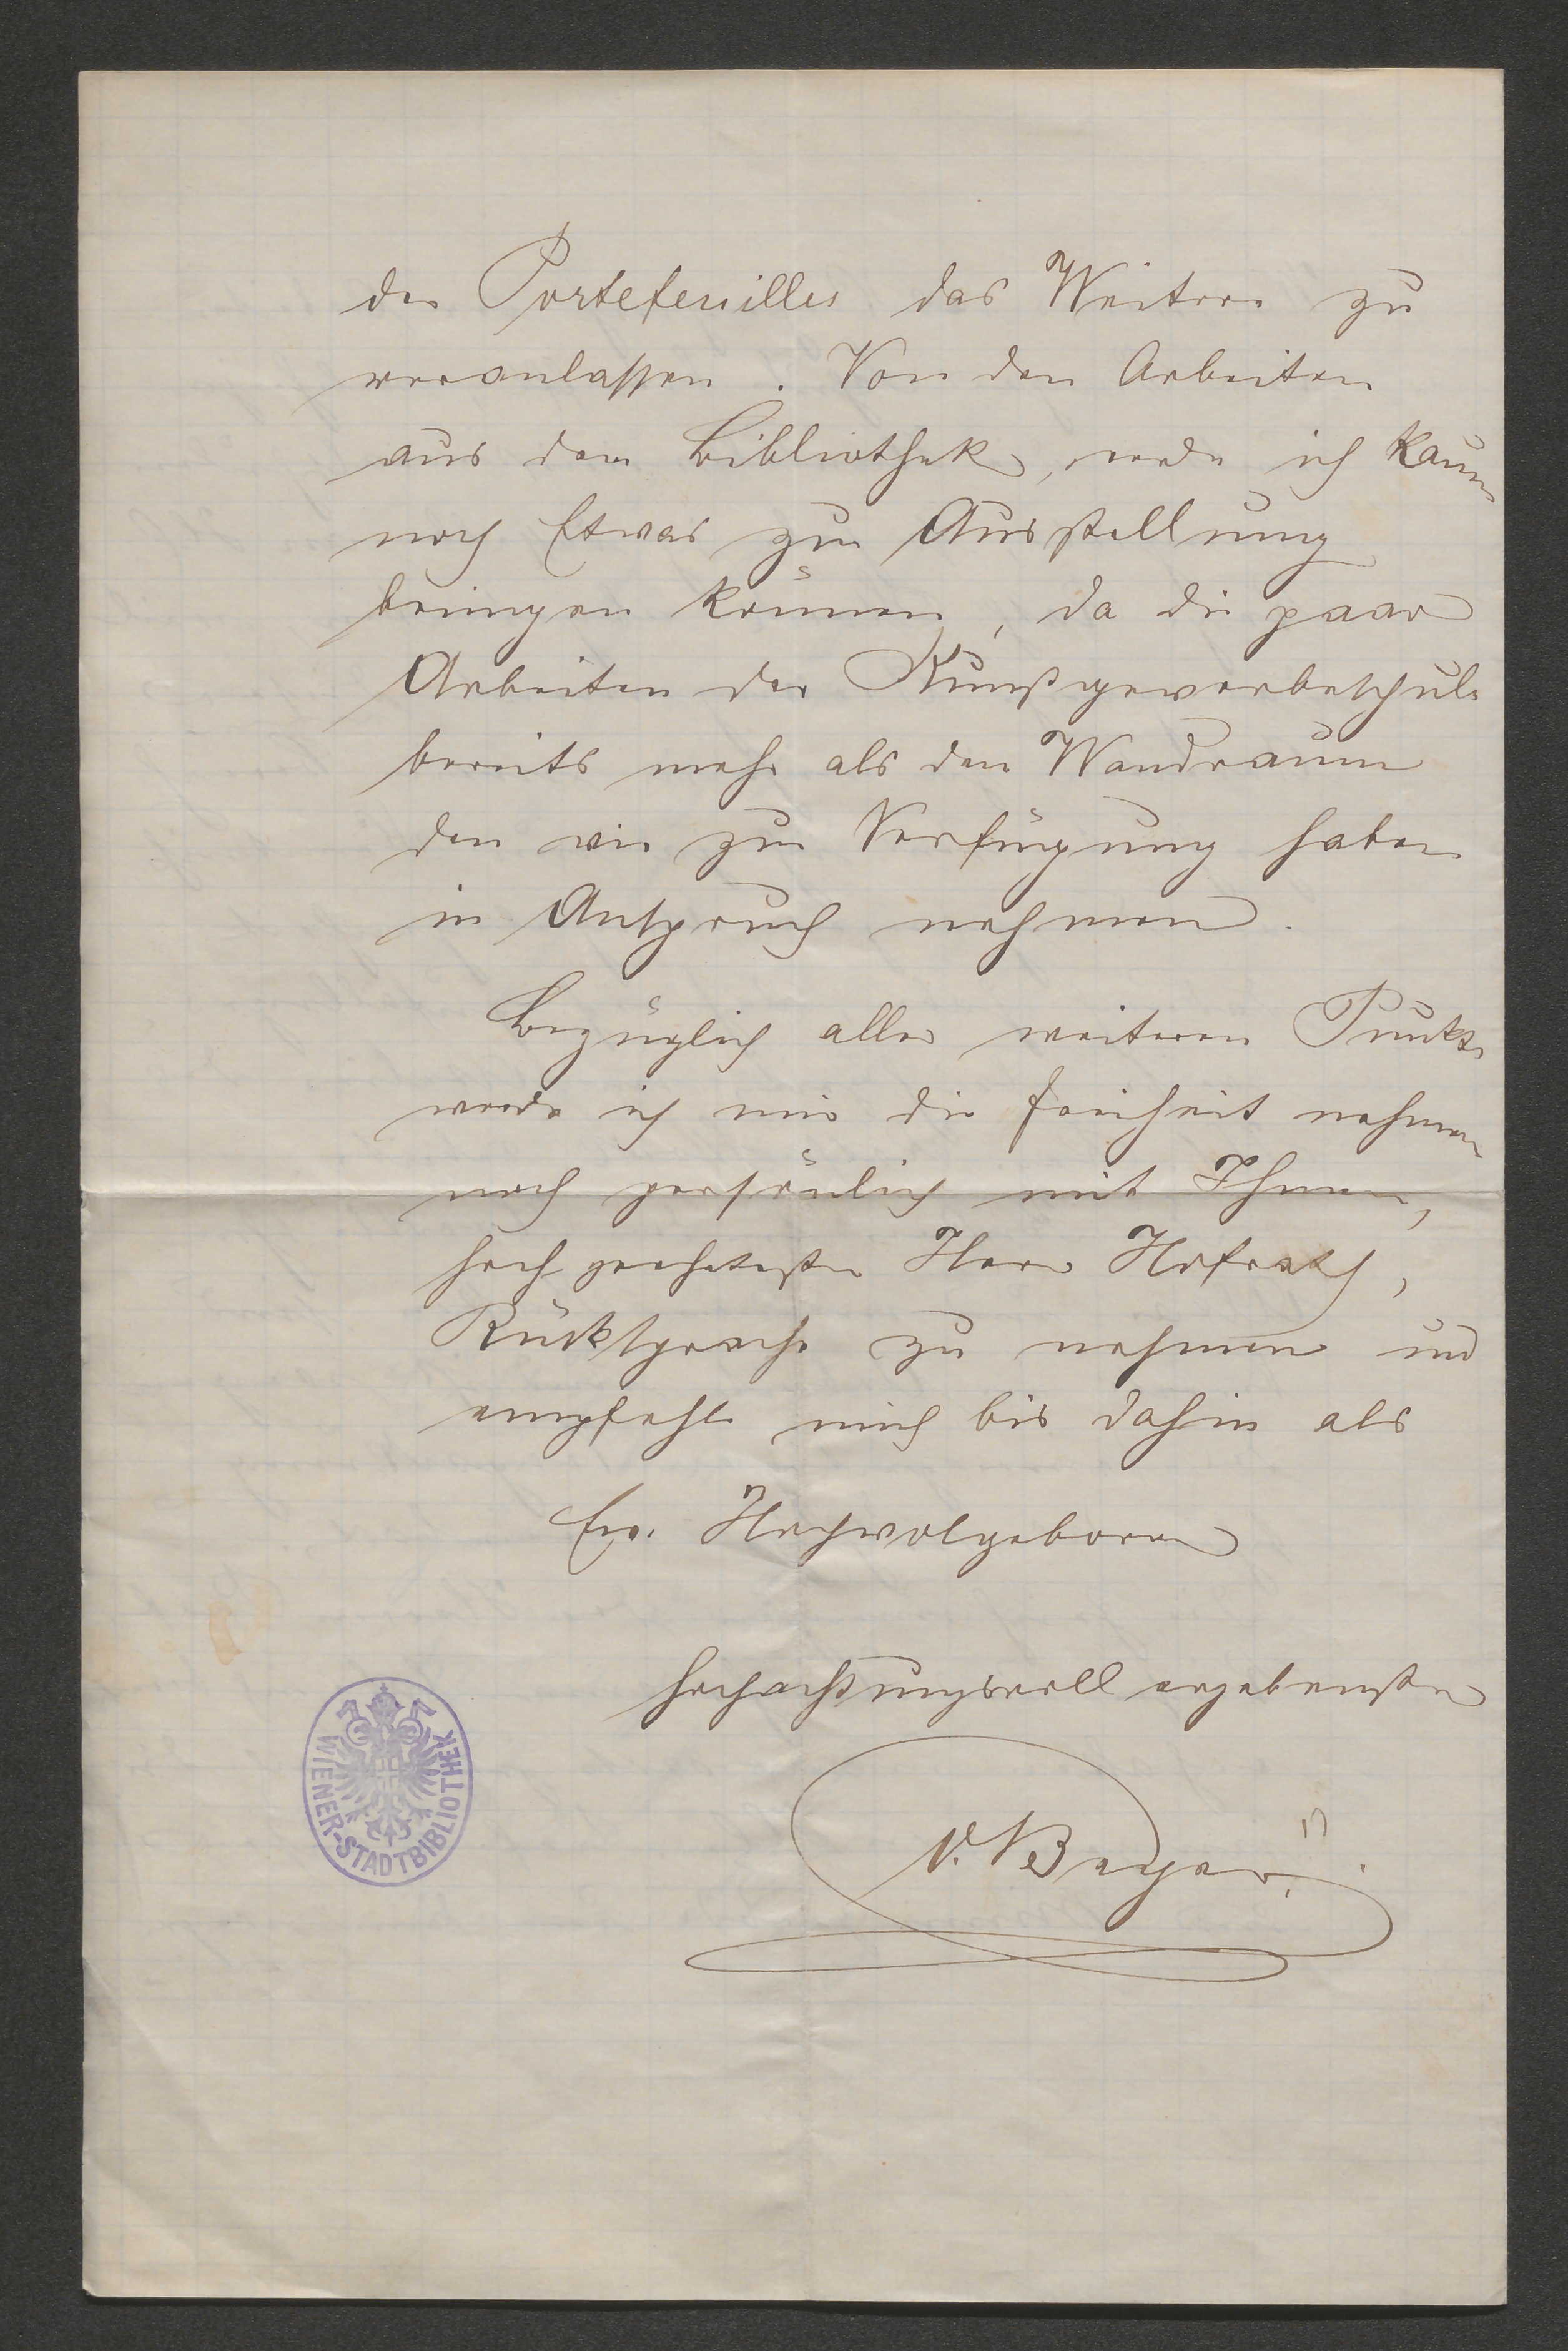 der Portefeuilles das Weitere zu
veranlassen. Von den Arbeiten
aus der Bibliothek, werde ich kaum
noch Etwas zur Ausstellung
bringen können, da die paar
Arbeiten der Kunstgewerbeschule
bereits mehr als den Wandraum
den wir zur Verfügung haben
in Anspruch nehmen.
Bezüglich aller weiteren Punkte
werde ich mir die Freiheit nehmen
noch persönlich mit Ihnen,
hochgeehrtester Herr Hofrath,
Rücksprache zu nehmen und
empfehle mich bis dahin als
Ew. Hochwolgeboren
hochachtungsvoll ergebenster
WIENER-STADTBIBLIOTHEK